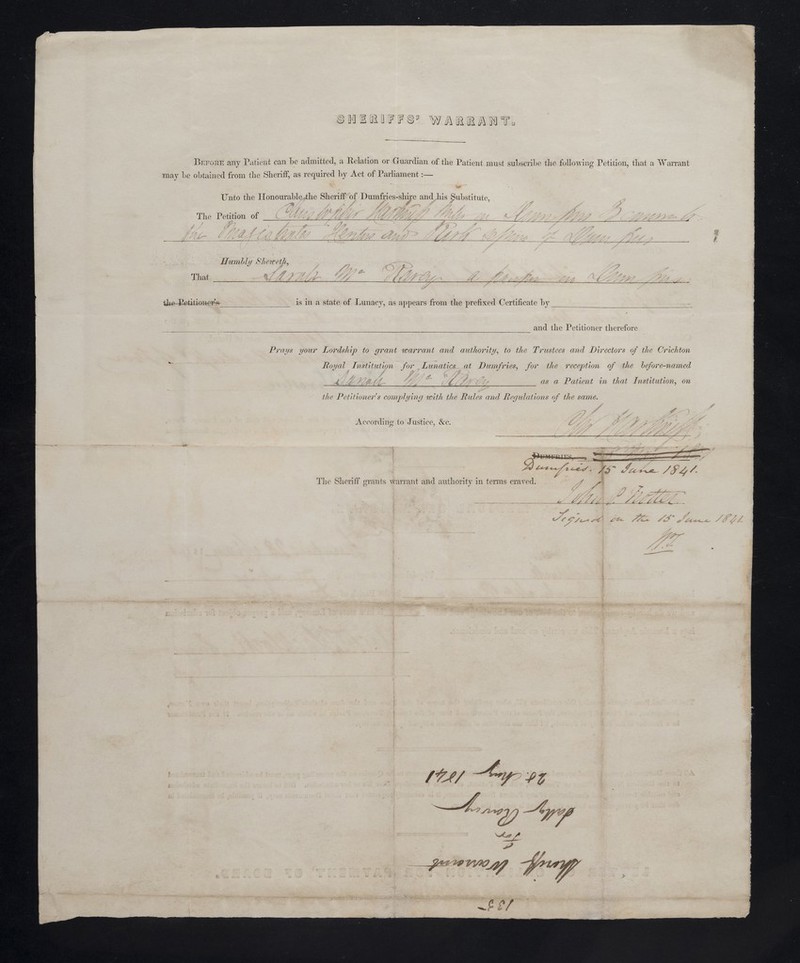 SHERIFFS' WARRANT.
BEFORE any Patient can be admitted, a Relation or Guardian of the Patient must subscribe the following Petition, that a Warrant
may be obtained from the Sheriff, as required by Act of Parliament:—
Unto the Honourable the Sheriff of Dumfries-shire and his Substitute,
The Petition of Christopher Harkness Writer in Dumfries
the Magistrates Heritors and Kirk Session of Dumfries
Humbly Sheweth,
That Sarah Harvey a pauper in Dumfries
the Petitioner's is in a state of Lunacy, as appears from the prefixed Certificate by
and the Petitioner therefore
Prays your Lordship to grant warrant and authority, to the Trustees and Directors of the Crichton
Royal Institution for Lunatics at Dumfries, for the reception of the before-named
Sarah Harvey as a Patient in that Institution, on
the Petitioner's complying with the Rules and Regulations of the same.
According to Justice, &c.
Chr Harkness
DUMFRIES,
Dumfries 15 June 1841.
The Sheriff grants warrant and authority in terms craved.
John
Signed on the 15 June 1841
28 May 1841
Sally Harvey
for
Sheriff Warrant